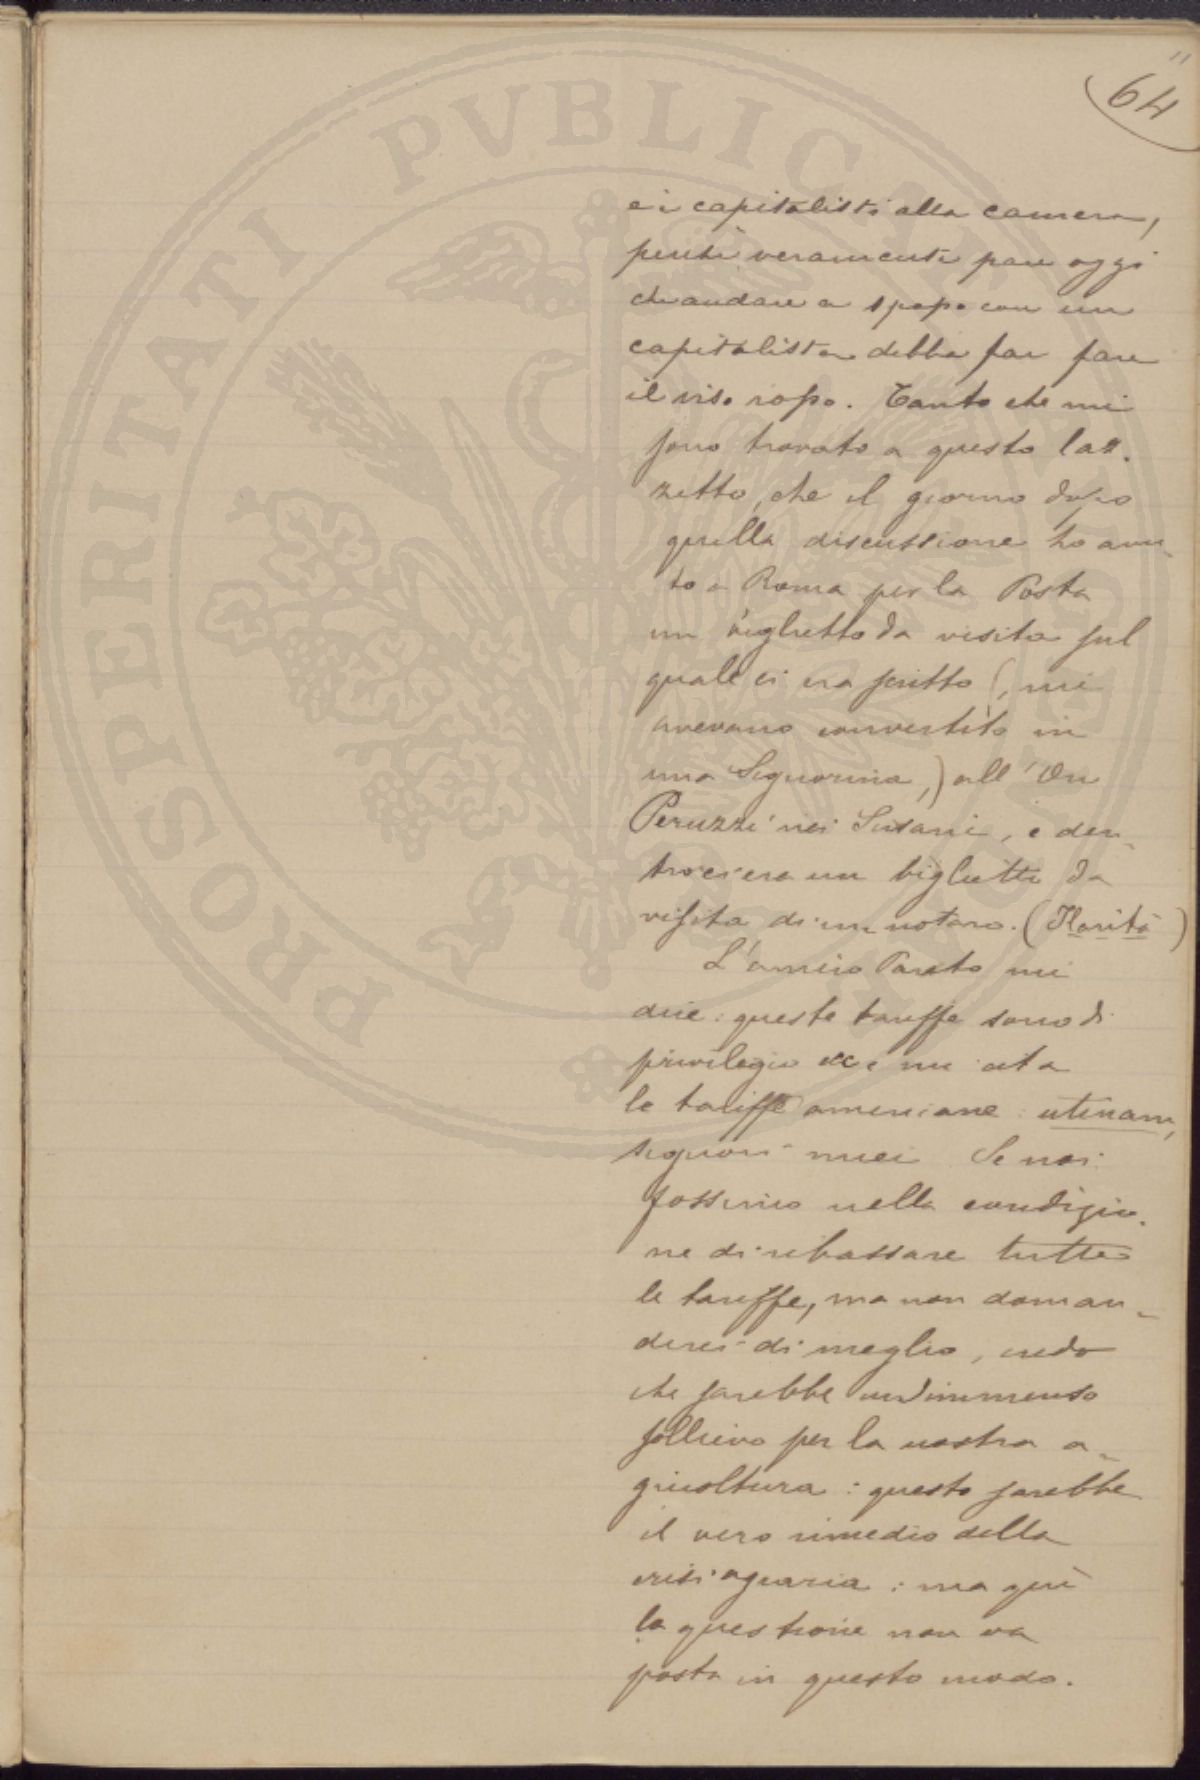 64
e i capitalisti alla camera,
perchè veramente pare oggi
che andare a spasso con un
capitalista debba far fare
il viso rosso. Tanto che mi
sono trovato a questo laz-
zetto, che il giorno dopo
quella discussione ho avu-
to a Roma per la Posta
un biglietto da visita sul
quale ci era scritto (mi
avevano convertito in
una Signorina,) all'On
Peruzzi nei Susani, e den-
tro ci era un biglietto da
visita di un notaro. (Ilarità)
L'amico Pareto mi
dice: queste tariffe sono di
privilegio e mi cita
le tariffe americane: utinam,
signori miei Se noi
fossimo nella condizio-
ne di ribassare tutte
le tariffe, ma non doman-
derei di meglio, credo
che sarebbe un immenso
sollievo per la nostra a-
gricoltura: questo sarebbe
il vero rimedio della
crisi agraria: ma qui
la questione non va
posta in questo modo.
PROSPERITATI PVBLICAE